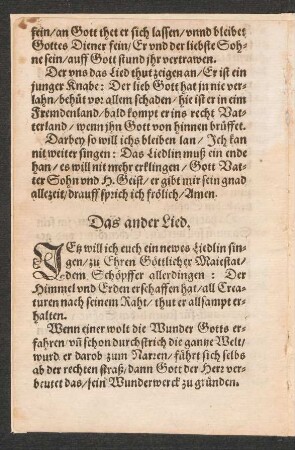 sein/an Gott thet er sich lassen/vnnd bleibet
Gottes Diener fein/Er vnd der liebste Soh-
ne sein/auff Gott stund jhr vertrawen.
Der vns das Lied thut zeigen an/Er ist ein
junger Knabe: Der lieb Gott hat jn nie ver-
lahn/behüt vor allem schaden/hie ist er in eim
Fremdenland/bald kompt er ins recht Vat-
terland/wenn jhn Gott von hinnen brüffet.
Darbey so will ichs bleiben lan/Ich kan
nit weiter singen: Das Liedlin muß ein ende
han/es will nit mehr erklingen/Gott Vat-
ter Sohn vnd H. Geist/er gibt mir sein gnad
allezeit/drauff sprich ich frölich/Amen.
Das ander Lied.
JEtz will ich euch ein newes Liedlin sin-
gen/zu Ehren Göttlicher Maiestat/
dem Schöpffer allerdingen: Der
Himmel vnd Erden erschaffen hat/all Crea-
turen nach seinem Raht/thut er allsampt er-
halten.
Wenn einer wolt die Wunder Gotts er-
fahren/vñ schon durchstrich die gantze Welt/
wurd er darob zum Narren/führt sich selbs
ab der rechten straß/dann Gott der Herr ver-
beutet das/sein Wunderwerck zu gründen.